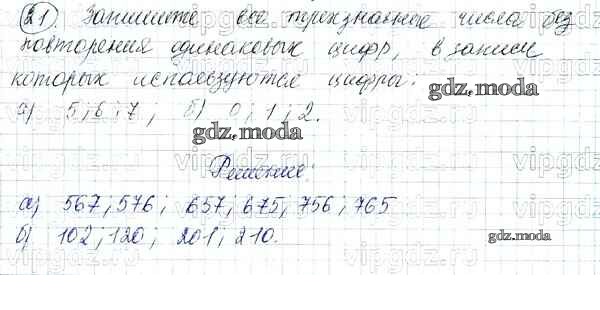 21) Запишите все трехзначные числа без
повторения одинаковых цифр, в записи
которых используются цифры:
а) 5; 6; 7, б) 0; 1; 2.
gdz.moda
gdz.moda
Решение:
а) 567; 576; 657; 675; 756; 765
б) 102; 120; 201; 210.
gdz.moda
vipgdz.ru